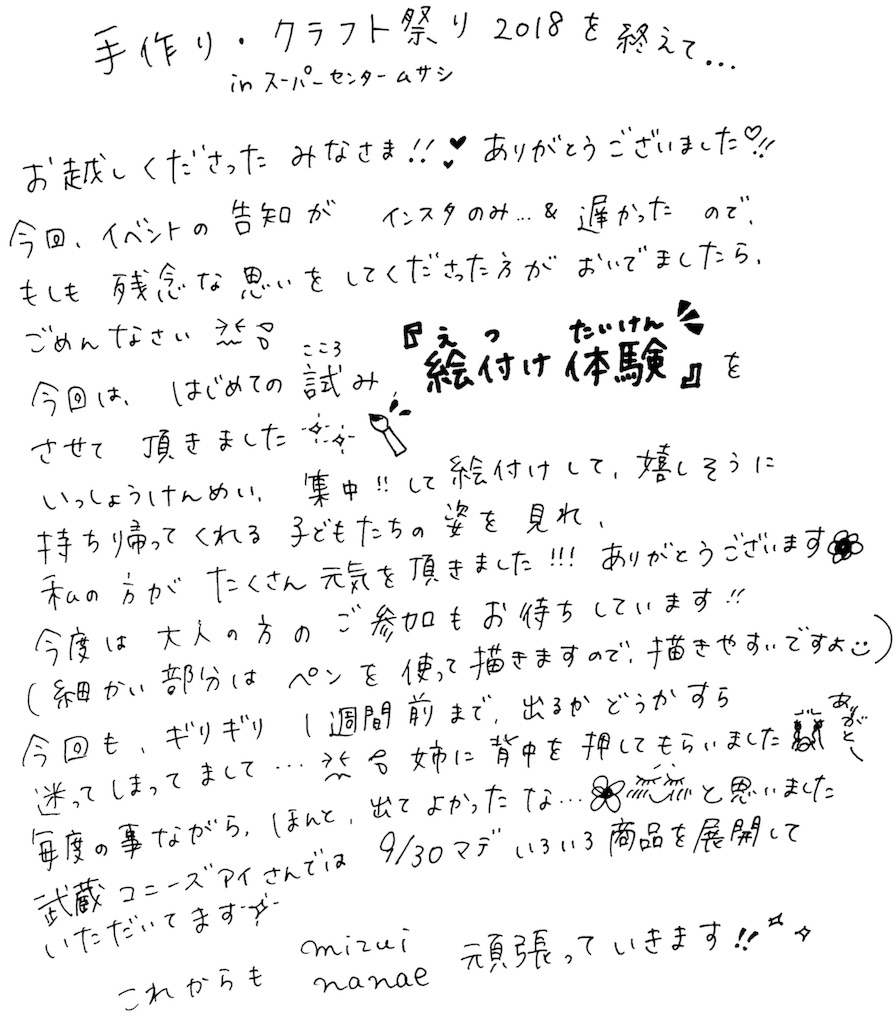 手作り・クラフト祭り2018を終えて...
in スーパーセンタームサシ
お越しくださったみなさま!!♥♥ありがとうございました♡!!
今回、イベントの告知が インスタのみ...&遅かったので、
もしも残念な思いをしてくださった方がおいでましたら、
ごめんなさい
こころ えつ たいけん
今回は、はじめての試み、『絵付け体験』を
させて頂きました
いっしょうけんめい、集中!!して絵付けして、嬉しそうに
持ち帰ってくれる子どもたちの姿を見れ、
私の方がたくさん元気を頂きました!!! ありがとうございます
今度は大人の方のご参加もお待ちしています!!
(細かい部分はペンを使って描きますので、描きやすいですよ☺)
今回も、ギリギリ1週間前まで、出るかどうかすら
迷ってしまってまして... 姉に背中を押してもらいました ありがとー
毎度の事ながら、ほんと、出てよかったな...と思いました
武蔵コニーズアイさんでは 9/30マデ いろいろ商品を展開して
いただいてます
これからも mizui nanae 頑張っていきます!!